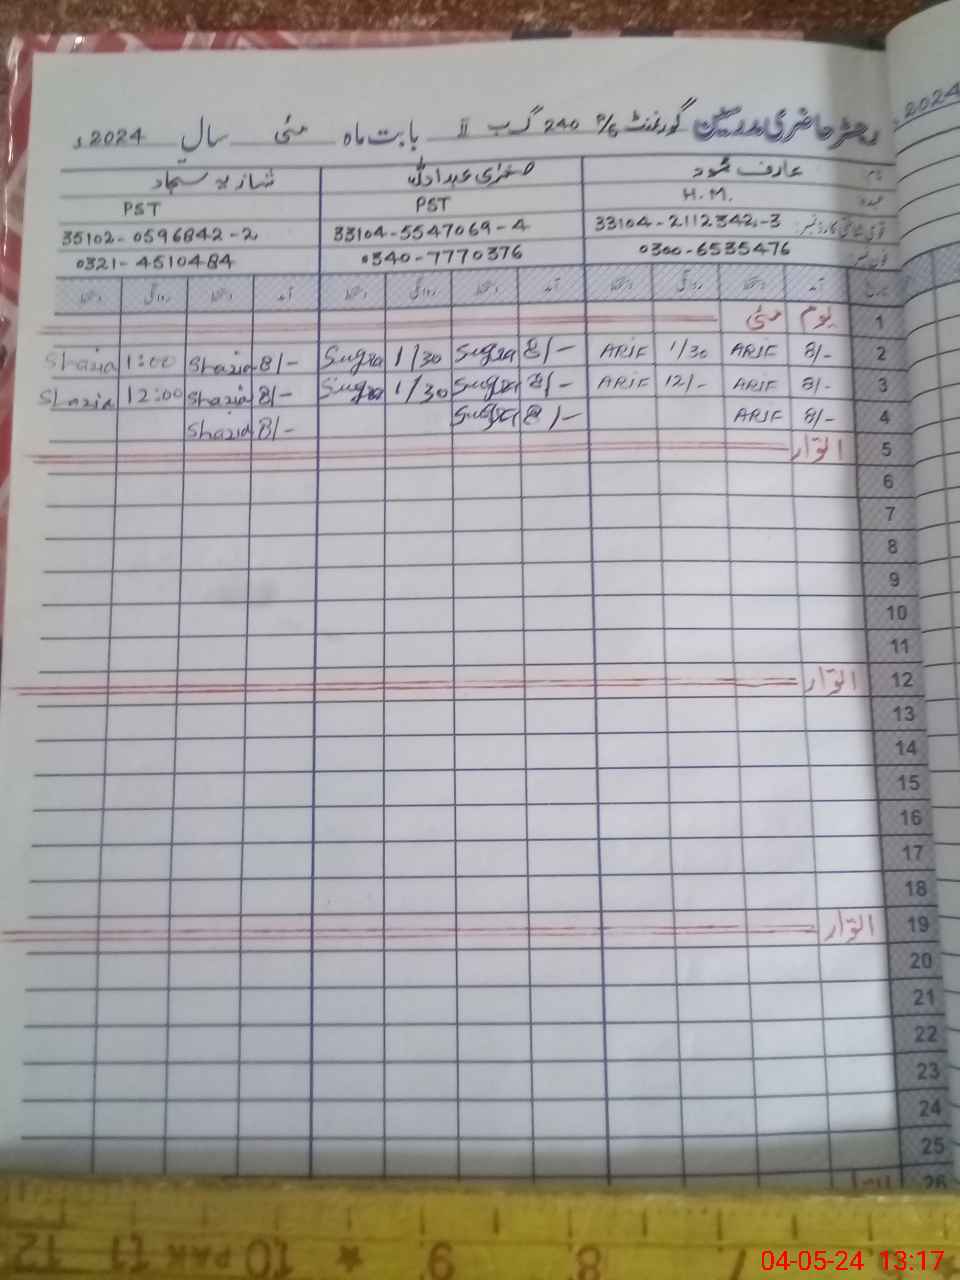 رجسٹر حاضری مدرسین گورنمنٹ P/S 240 گ ب II بابت ماہ مئی سال 2024ء
نام عارف محمود صغریٰ شازیہ سجاد
عہدہ H.M. PST PST
قومی شناختی کارڈ نمبر 33104-2112342-3 33104-5547069-4 35102-0596842-2
فون نمبر 0300-6535476 0340-7770376 0321-4510484
تاریخ آمد دستخط روانگی دستخط آمد دستخط روانگی دستخط آمد دستخط روانگی دستخط
1 یوم مئی
2 8/- ARIF 1/30 ARIF 8/- Sugra 1/30 Sugra 8/- Shazia 1:00 Shazia
3 8/- ARIF 12/- ARIF 8/- Sugra 1/30 Sugra 8/- Shazia 12:00 Shazia
4 8/- ARIF 8/- Sugra 8/- Shazia
5 اتوار
6
7
8
9
10
11
12 اتوار
13
14
15
16
17
18
19 اتوار
20
21
22
23
24
25
26
2024ء
12 11 10 9 8 7
04-05-24 13:17